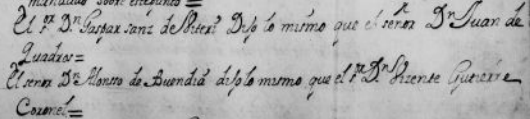 mandado sobre este punto=
El sr. Dn Gaspar sanz de Viteri Dijo lo mismo que el señor Dn Juan de
Quadros=
El señor Dn Alonsso de Auendiá dijo lo mismo que el sr Dn Vizente Gutierre
Coronel=